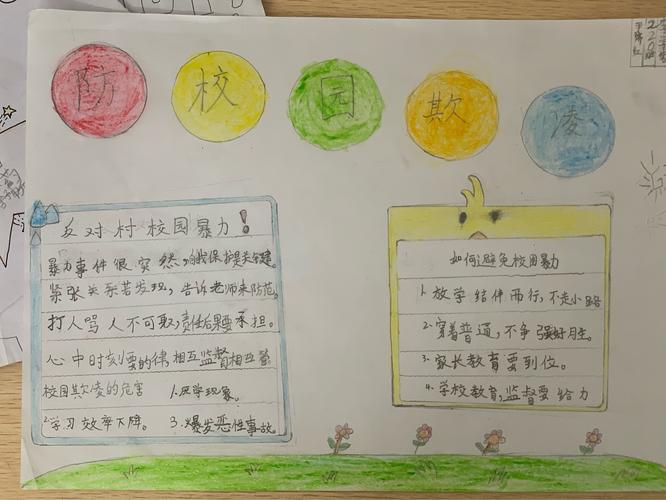 防校园欺凌
反对村校园暴力！
暴力事件很突然，自我保护是关键。
紧张关系若发现，告诉老师来防范。
打人骂人不可取，责任后果要承担。
心中时刻要的律相互监督相互督
校园欺凌的危害 1.厌学现象。
2.学习效率下降。 3.爆发恶性事故。
如何避免校园暴力
1.放学结伴而行，不走小路
2.穿着普通，不争强好胜。
3.家长教育要到位。
4.学校教育，监督要给力